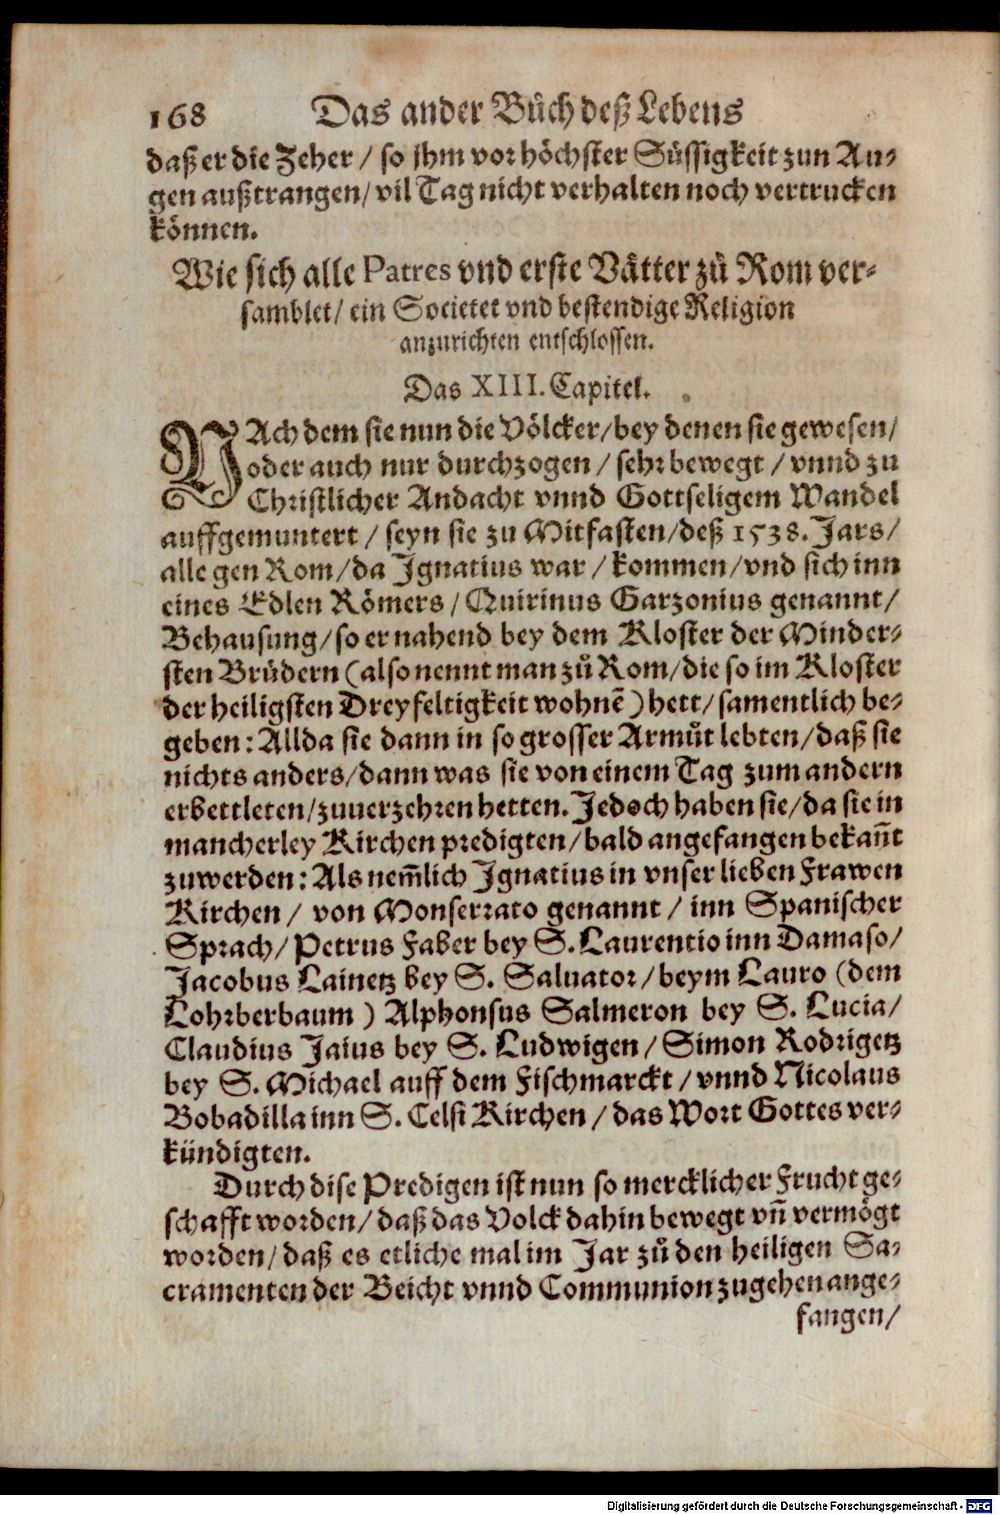 168 Das ander Bůch deß Lebens
daß er die Zeher / so jhm vor höchster Süssigkeit zun Au-
gen außtrangen / vil Tag nicht verhalten noch vertrucken
können.
Wie sich alle Patres vnd erste Vätter zů Rom ver-
samblet / ein Societet vnd bestendige Religion
anzurichten entschlossen.
Das XIII. Capitel.
NAch dem sie nun die Völcker / bey denen sie gewesen /
oder auch nur durchzogen / sehr bewegt / vnnd zu
Christlicher Andacht vnnd Gottseligem Wandel
auffgemuntert / seyn sie zu Mitfasten / deß 1538. Jars /
alle gen Rom / da Ignatius war / kommen / vnd sich inn
eines Edlen Römers / Quirinus Garzonius genannt /
Behausung / so er nahend bey dem Kloster der Minder-
sten Brüdern (also nennt man zů Rom / die so im Kloster
der heiligsten Dreyfeltigkeit wohnẽ) hett / samentlich be-
geben: Allda sie dann in so grosser Armůt lebten / daß sie
nichts anders / dann was sie von einem Tag zum andern
erbettleten / zuuerzehren hetten. Jedoch haben sie / da sie in
mancherley Kirchen predigten / bald angefangen bekañt
zuwerden: Als nem̃lich Ignatius in vnser lieben Frawen
Kirchen / von Monserrato genannt / inn Spanischer
Sprach / Petrus Faber bey S. Laurentio inn Damaso /
Jacobus Lainetz bey S. Saluator / beym Lauro (dem
Lohrberbaum) Alphonsus Salmeron bey S. Lucia /
Claudius Jaius bey S. Ludwigen / Simon Rodrigetz
bey S. Michael auff dem Fischmarckt / vnnd Nicolaus
Bobadilla inn S. Celsi Kirchen / das Wort Gottes ver-
kündigten.
Durch dise Predigen ist nun so mercklicher Frucht ge-
schafft worden / daß das Volck dahin bewegt vñ vermögt
worden / daß es etliche mal im Jar zů den heiligen Sa-
cramenten der Beicht vnnd Communion zugehen ange-
fangen /
Digitalisierung gefördert durch die Deutsche Forschungsgemeinschaft - DFG